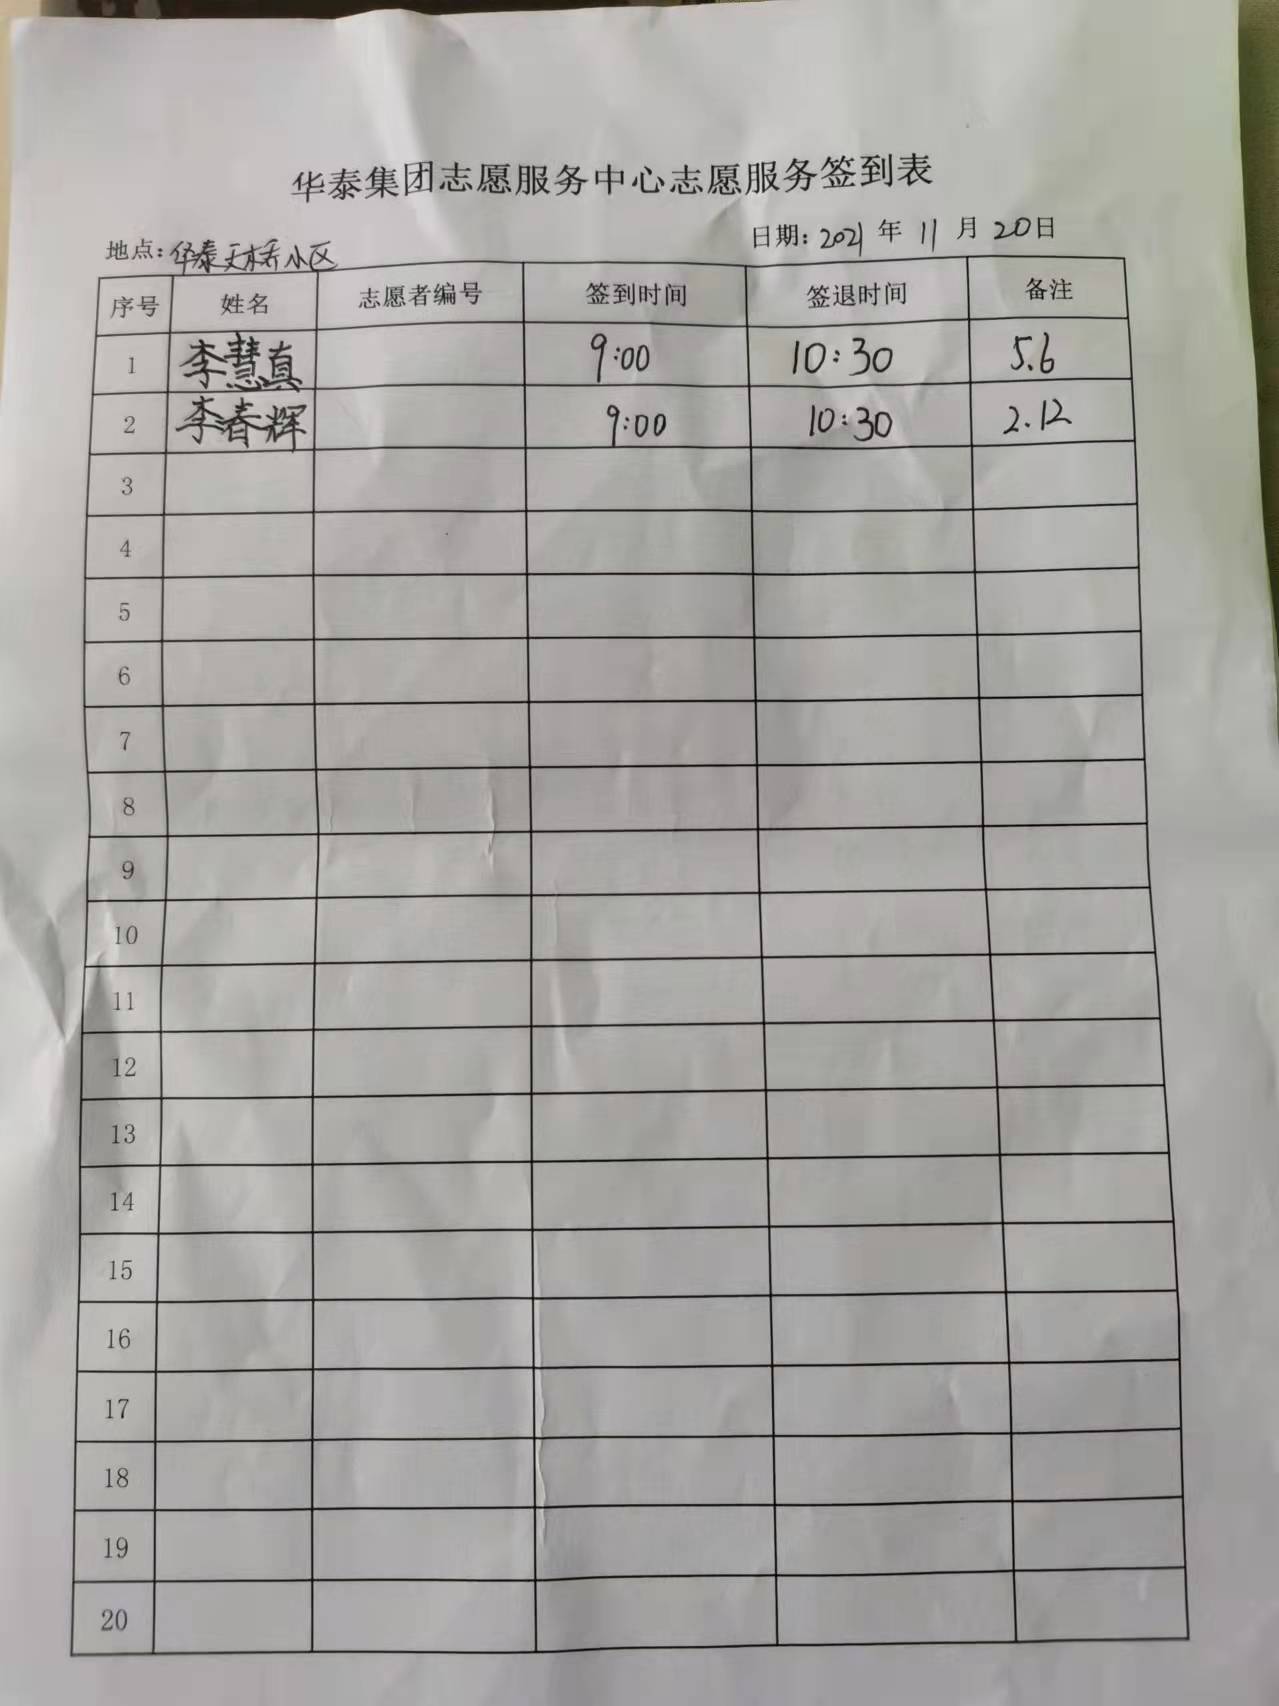 华泰集团志愿服务中心志愿服务签到表
地点:华泰天桥小区 日期:2021年11月20日
序号 姓名 志愿者编号 签到时间 签退时间 备注
1 李慧真 9:00 10:30 5.6
2 李春辉 9:00 10:30 2.12
3
4
5
6
7
8
9
10
11
12
13
14
15
16
17
18
19
20